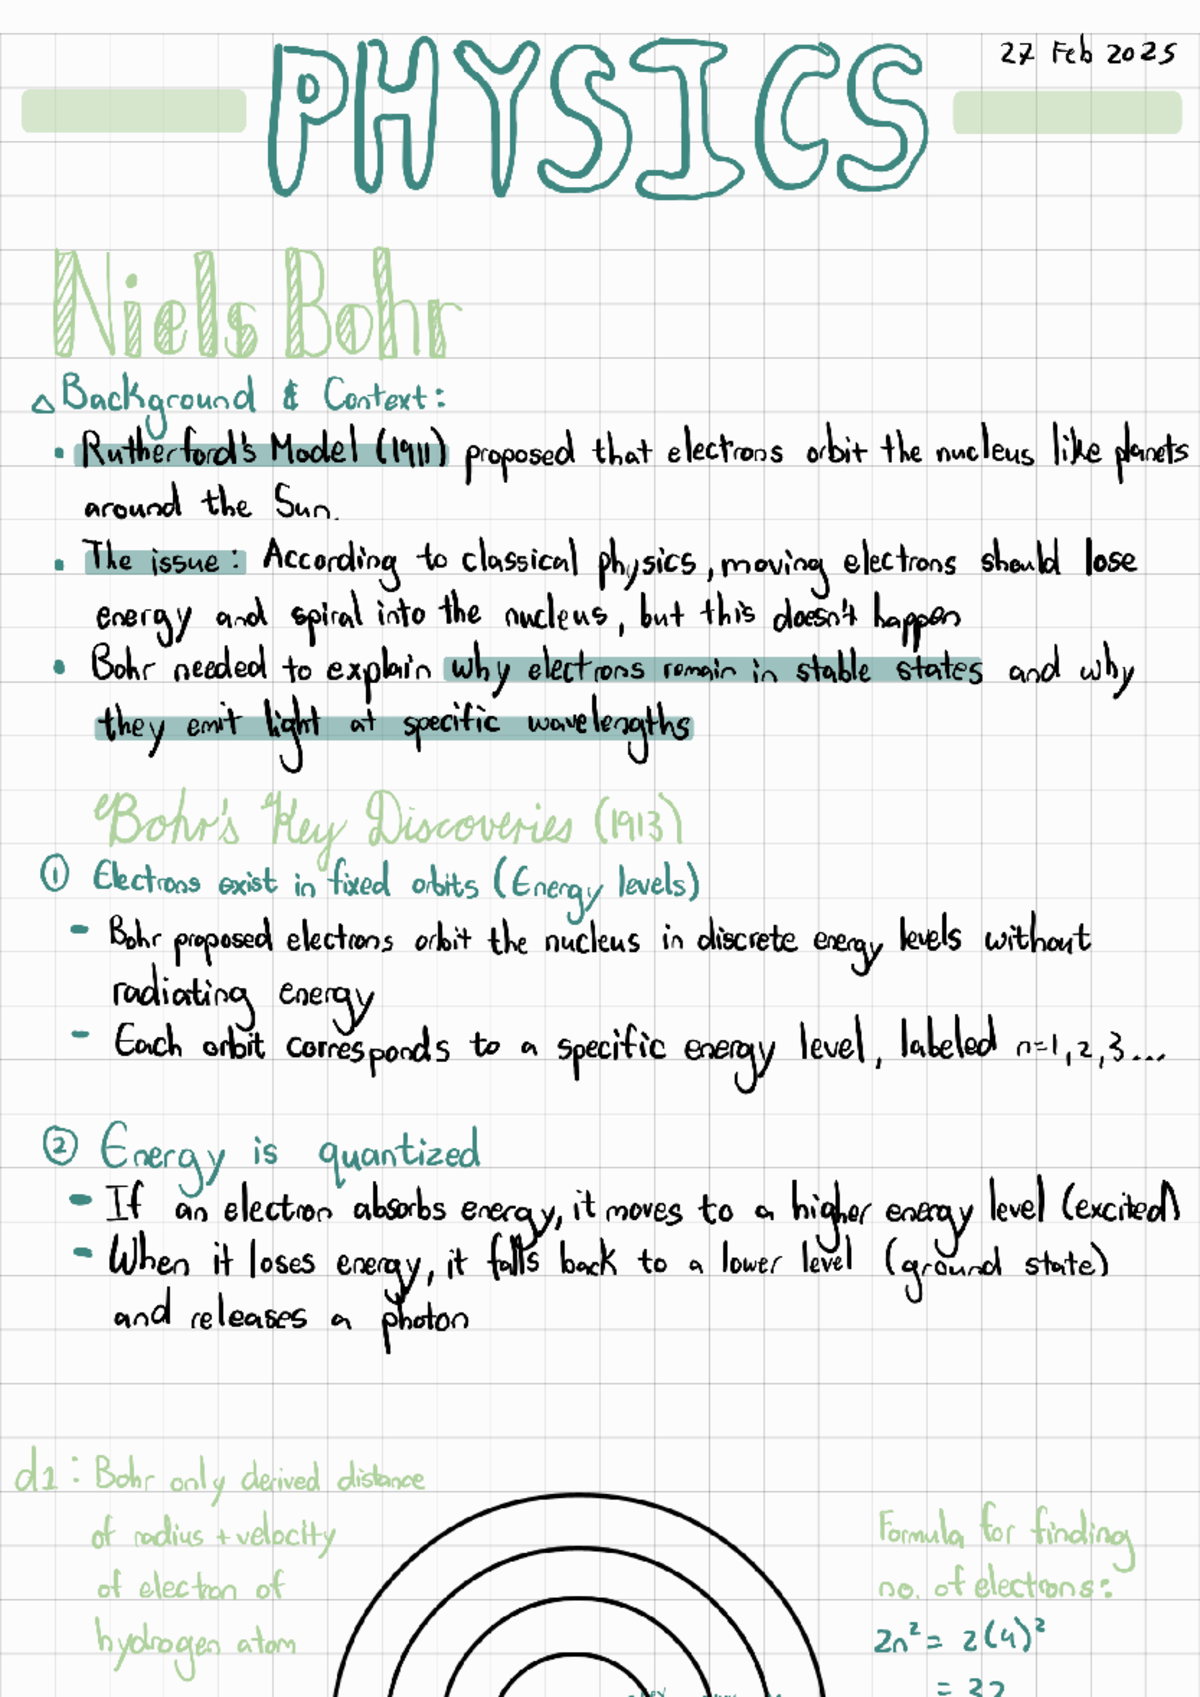 27 Feb 2025
PHYSICS
Niels Bohr
△ Background & Context:
• Rutherford's Model (1911) proposed that electrons orbit the nucleus like planets
around the Sun.
• The issue: According to classical physics, moving electrons should lose
energy and spiral into the nucleus, but this doesn't happen
• Bohr needed to explain why electrons remain in stable states and why
they emit light at specific wavelengths
Bohr's Key Discoveries (1913)
① Electrons exist in fixed orbits (Energy levels)
- Bohr proposed electrons orbit the nucleus in discrete energy levels without
radiating energy
- Each orbit corresponds to a specific energy level, labeled n=1,2,3...
② Energy is quantized
- If an electron absorbs energy, it moves to a higher energy level (excited)
- When it loses energy, it falls back to a lower level (ground state)
and releases a photon
d1: Bohr only derived distance
of radius + velocity
of electron of
hydrogen atom
Formula for finding
no. of electrons:
2n² = 2(4)²
= 32